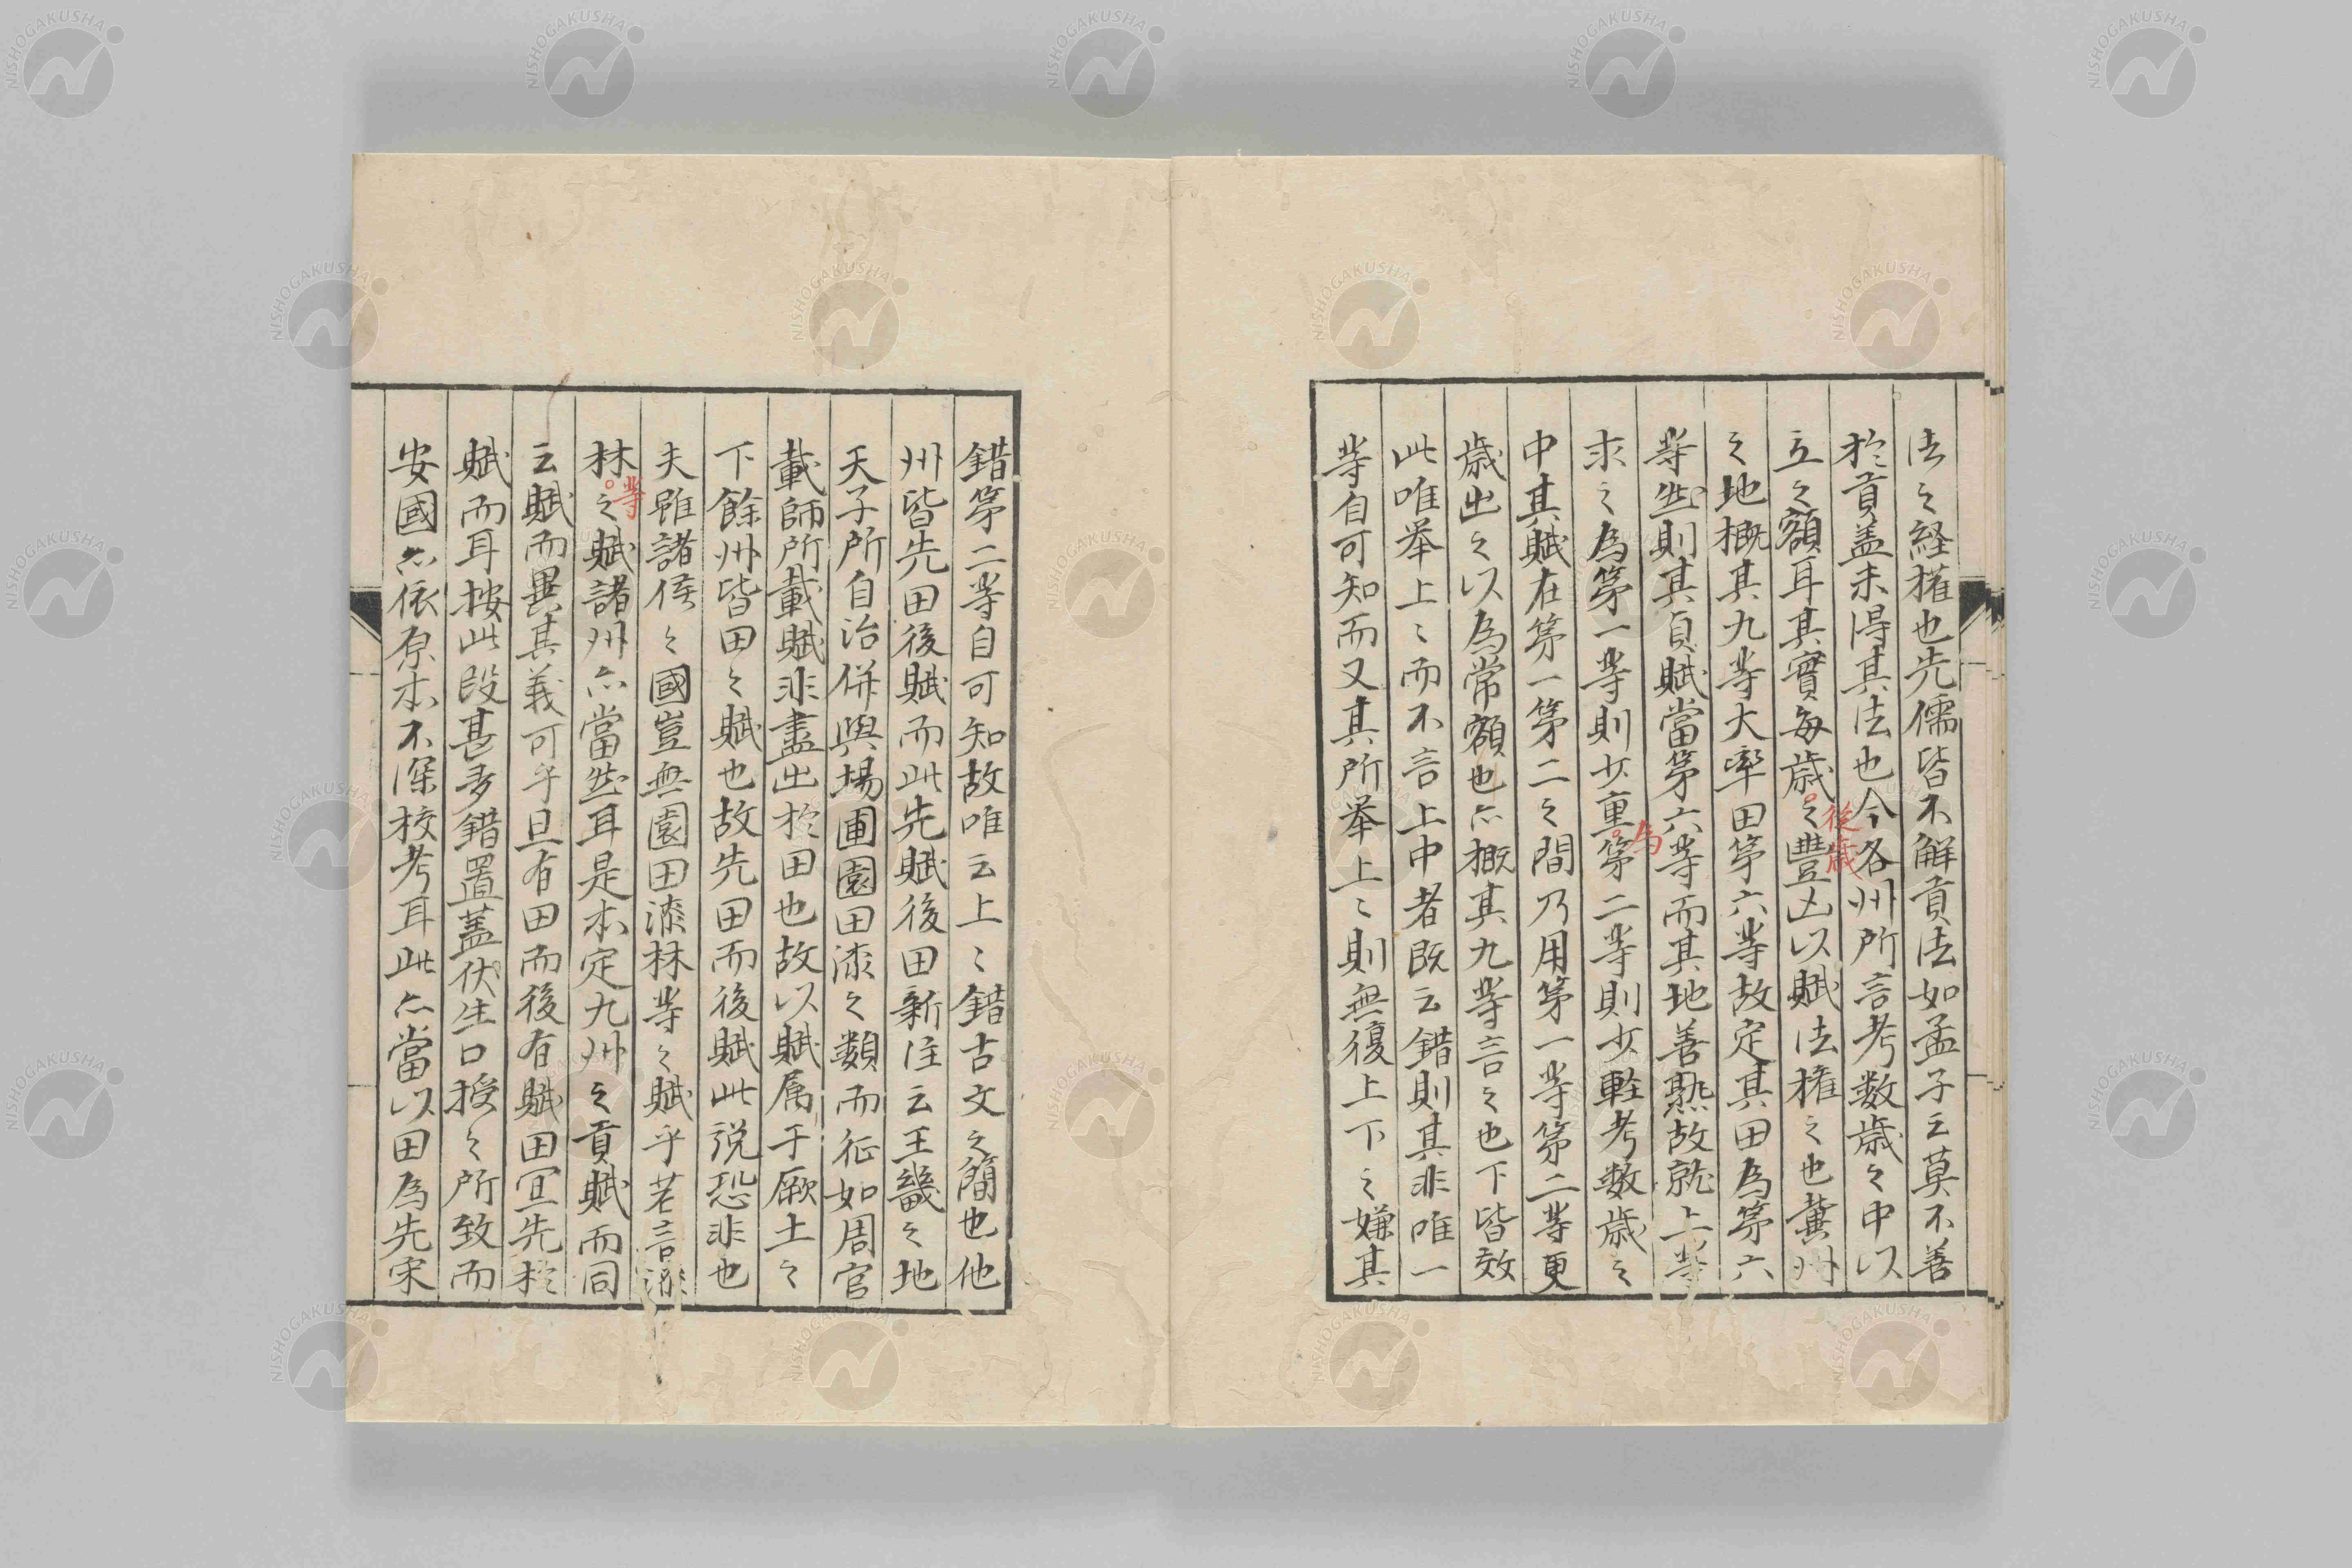 法之経権也先儒皆不解貢法如孟子云莫不善
於貢盖未得其法也今各州所言考数歳之中以
立之額耳其實毎歳之豐凶以賦法権之也冀州
従歳
之地概其九等大率田第六等故定其田為第六
等然則其貢賦當第六等而其地善熟故就上等
求之為第一等則少重第二等則少軽考数歳之
為
中其賦在第一第二之間乃用第一等第二等更
歳出之以為常額也亦概其九等言之也下皆效
此唯挙上々而不言上中者既云錯則其非唯一
等自可知而又其所挙上々則無復上下之嫌其
錯第二等自可知故唯云上々錯古文之簡也他
州皆先田後賦而此先賦後田新注云王畿之地
天子所自治併與場圃園田漆之類而征如周官
載師所載賦非盡出於田也故以賦属于厥土之
下餘州皆田之賦也故先田而後賦此説恐非也
夫雖諸侯之國豈無園田漆林等之賦乎若言漆
林之賦諸州亦當然耳是本定九州之貢賦而同
等
云賦而異其義可乎且有田而後有賦田宜先於
賦而耳按此段甚多錯置蓋伏生口授之所致而
安國亦依原本不深校考耳此亦當以田為先宋
NISHOGAKUSHA